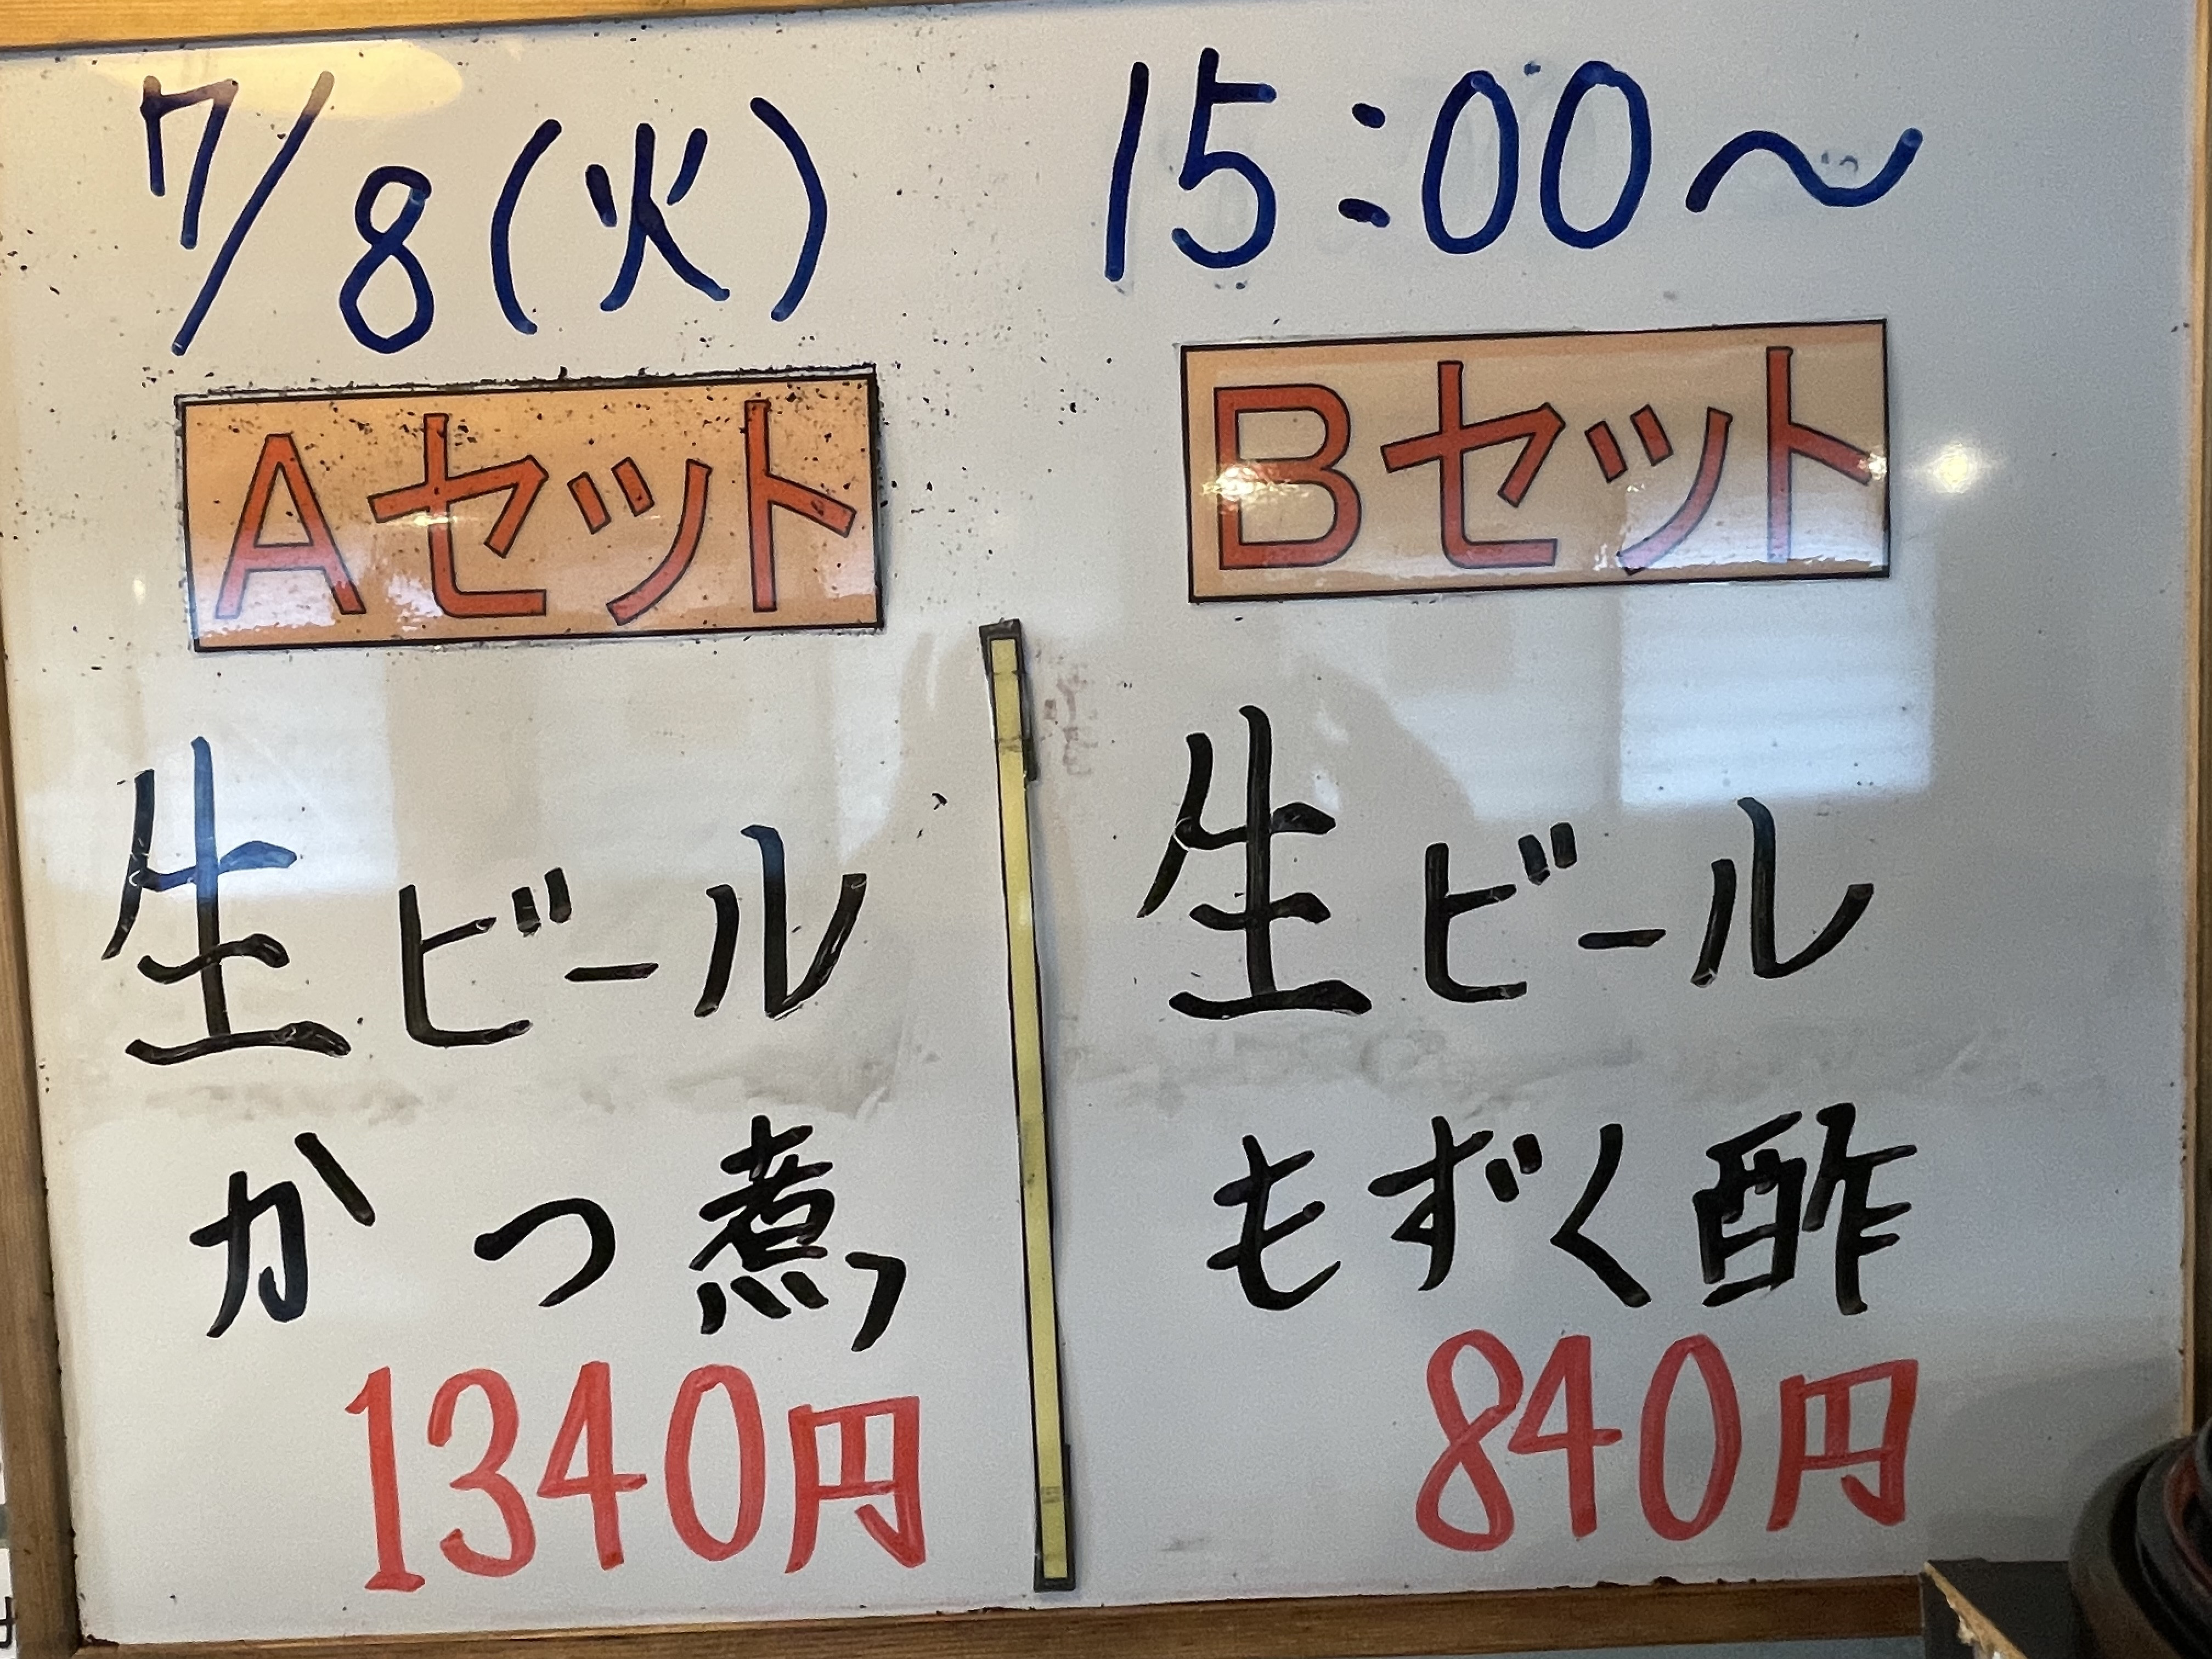 7/8(火) 15:00～
Aセット
Bセット
生ビール
かつ煮
1340円
生ビール
もずく酢
840円